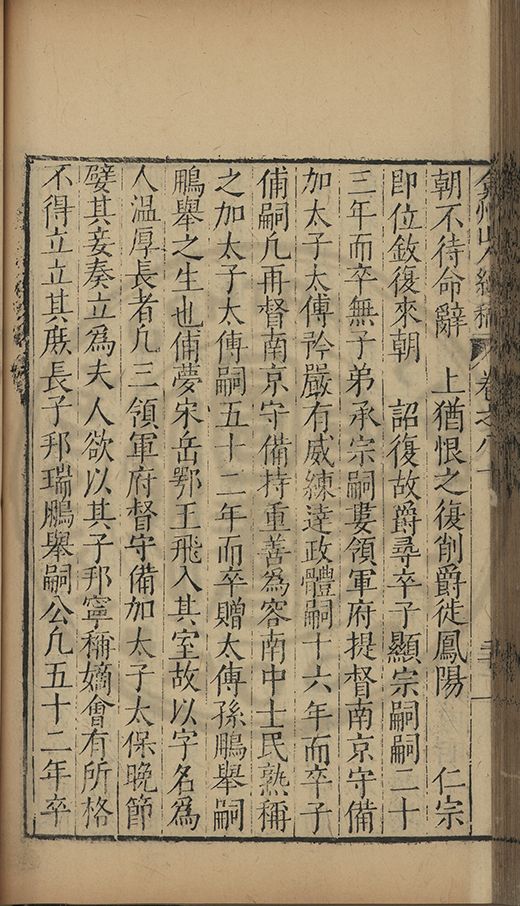 弇州山人續稿 卷之八十
朝不待命辭 上猶恨之復削爵徙鳳陽 仁宗
即位敘復來朝 詔復故爵尋卒子顯宗嗣嗣二十
三年而卒無子弟承宗嗣婁領軍府提督南京守備
加太子太傅矜嚴有威練達政體嗣十六年而卒子
俌嗣凢再督南京守備持重善為容南中士民熟稱
之加太子太傅嗣五十二年而卒贈太傅孫鵬舉嗣
鵬舉之生也俌夢宋岳鄂王飛入其室故以字名為
人溫厚長者凢三領軍府督守備加太子太保晚節
嬖其妾奏立為夫人欲以其子邦寧稱嫡會有所格
不得立立其庶長子邦瑞鵬舉嗣公凢五十二年卒